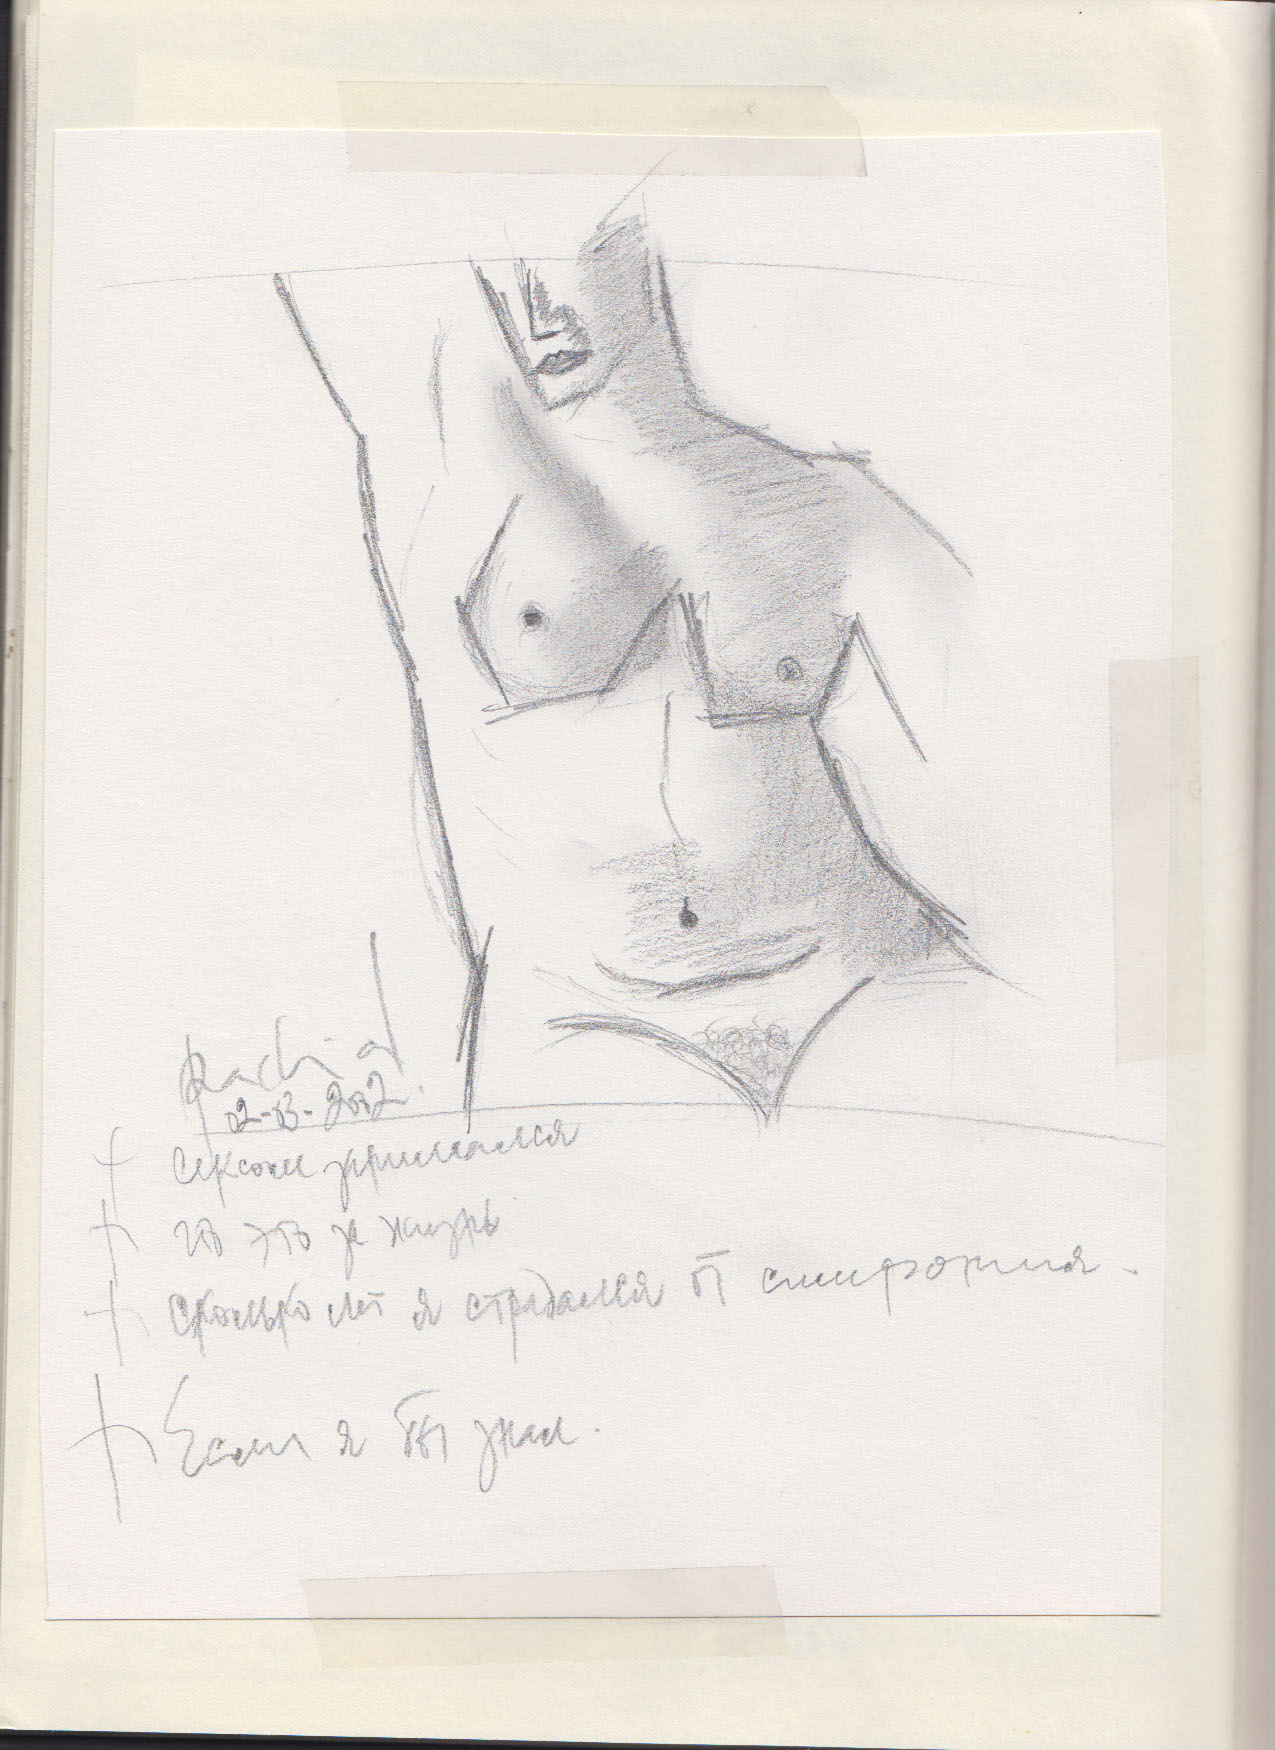 Rachid
02-03-2002.
сексом занимался
что это за жизнь
сколько лет я страдался от
Если я бы знал.